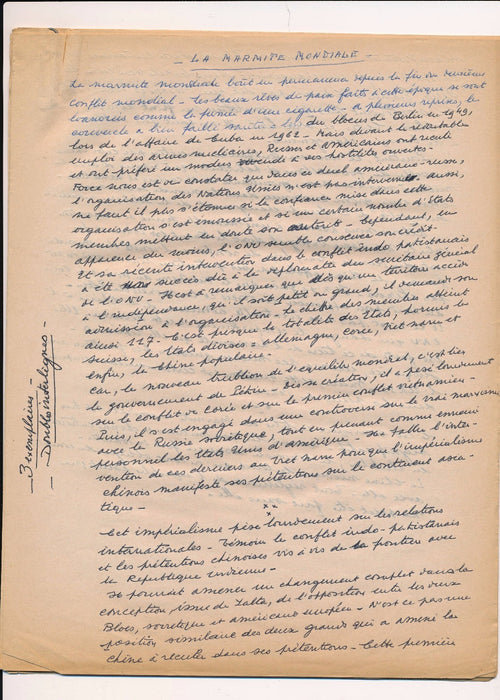 - LA MARMITE MONDIALE -
La marmite mondiale bout en permanence depuis la fin du dernier
conflit mondial - Les beaux rêves de paix faits à cette époque se sont
évanouis comme la fumée d'une cigarette - à plusieurs reprises, le
couvercle a bien failli sauter : lors du blocus de Berlin en 1949,
lors de l'affaire de Cuba en 1962 - Mais devant le redoutable
emploi des armes nucléaires, Russes et américains ont
et ont préféré un modus vivendi à des hostilités ouvertes -
Force nous est de constater que dans ce duel américano-russe,
l'organisation des Nations Unies n'est pas intervenue aussi,
ne faut il pas s'étonner si la confiance mise dans cette
organisation s'est émoussée et si un certain nombre d'Etats
membres mettent en doute son autorité - Cependant, en
apparence du moins, l'ONU semble conserver son crédit -
Et sa récente intervention dans le conflit indo pakistanais
a été un succès dû à la diplomatie du secrétaire général
de l'ONU - Il est à remarquer que dès qu'un territoire accède
à l'indépendance, qu'il soit petit ou grand, il demande son
admission à l'organisation - le chiffre des membres atteint
ainsi 117 - C'est presque la totalité des Etats, hormis la
Suisse, les Etats divisés : allemagne, corée, Viet nam et
enfin, la Chine populaire -
Car, le nouveau trublion de l'équilibre mondial, c'est bien
le gouvernement de Pékin - Dès sa création, il a pesé lourdement
sur le conflit de Corée et sur le premier conflit vietnamien -
Puis, il s'est engagé dans une controverse sur le vrai marxisme
avec la Russie soviétique, tout en prenant comme ennemi
personnel les Etats Unis d'amérique - Il a fallu l'inter-
vention de ces derniers au Viet nam pour que l'impérialisme
chinois manifeste ses prétentions sur le continent asia-
tique -
x x
x
Cet impérialisme pèse lourdement sur les relations
internationales - Témoin le conflit indo-pakistanais
et les prétentions chinoises vis à vis de la frontière avec
la République indienne -
Il pourrait amener un changement complet dans la
conception, issue de Yalta, de l'opposition entre les deux
Blocs, soviétique et américano européen - N'est ce pas une
position similaire des deux grands qui a amené la
Chine à reculer dans ses prétentions - Cette première
3 exemplaires -
- Doubles interlignes -